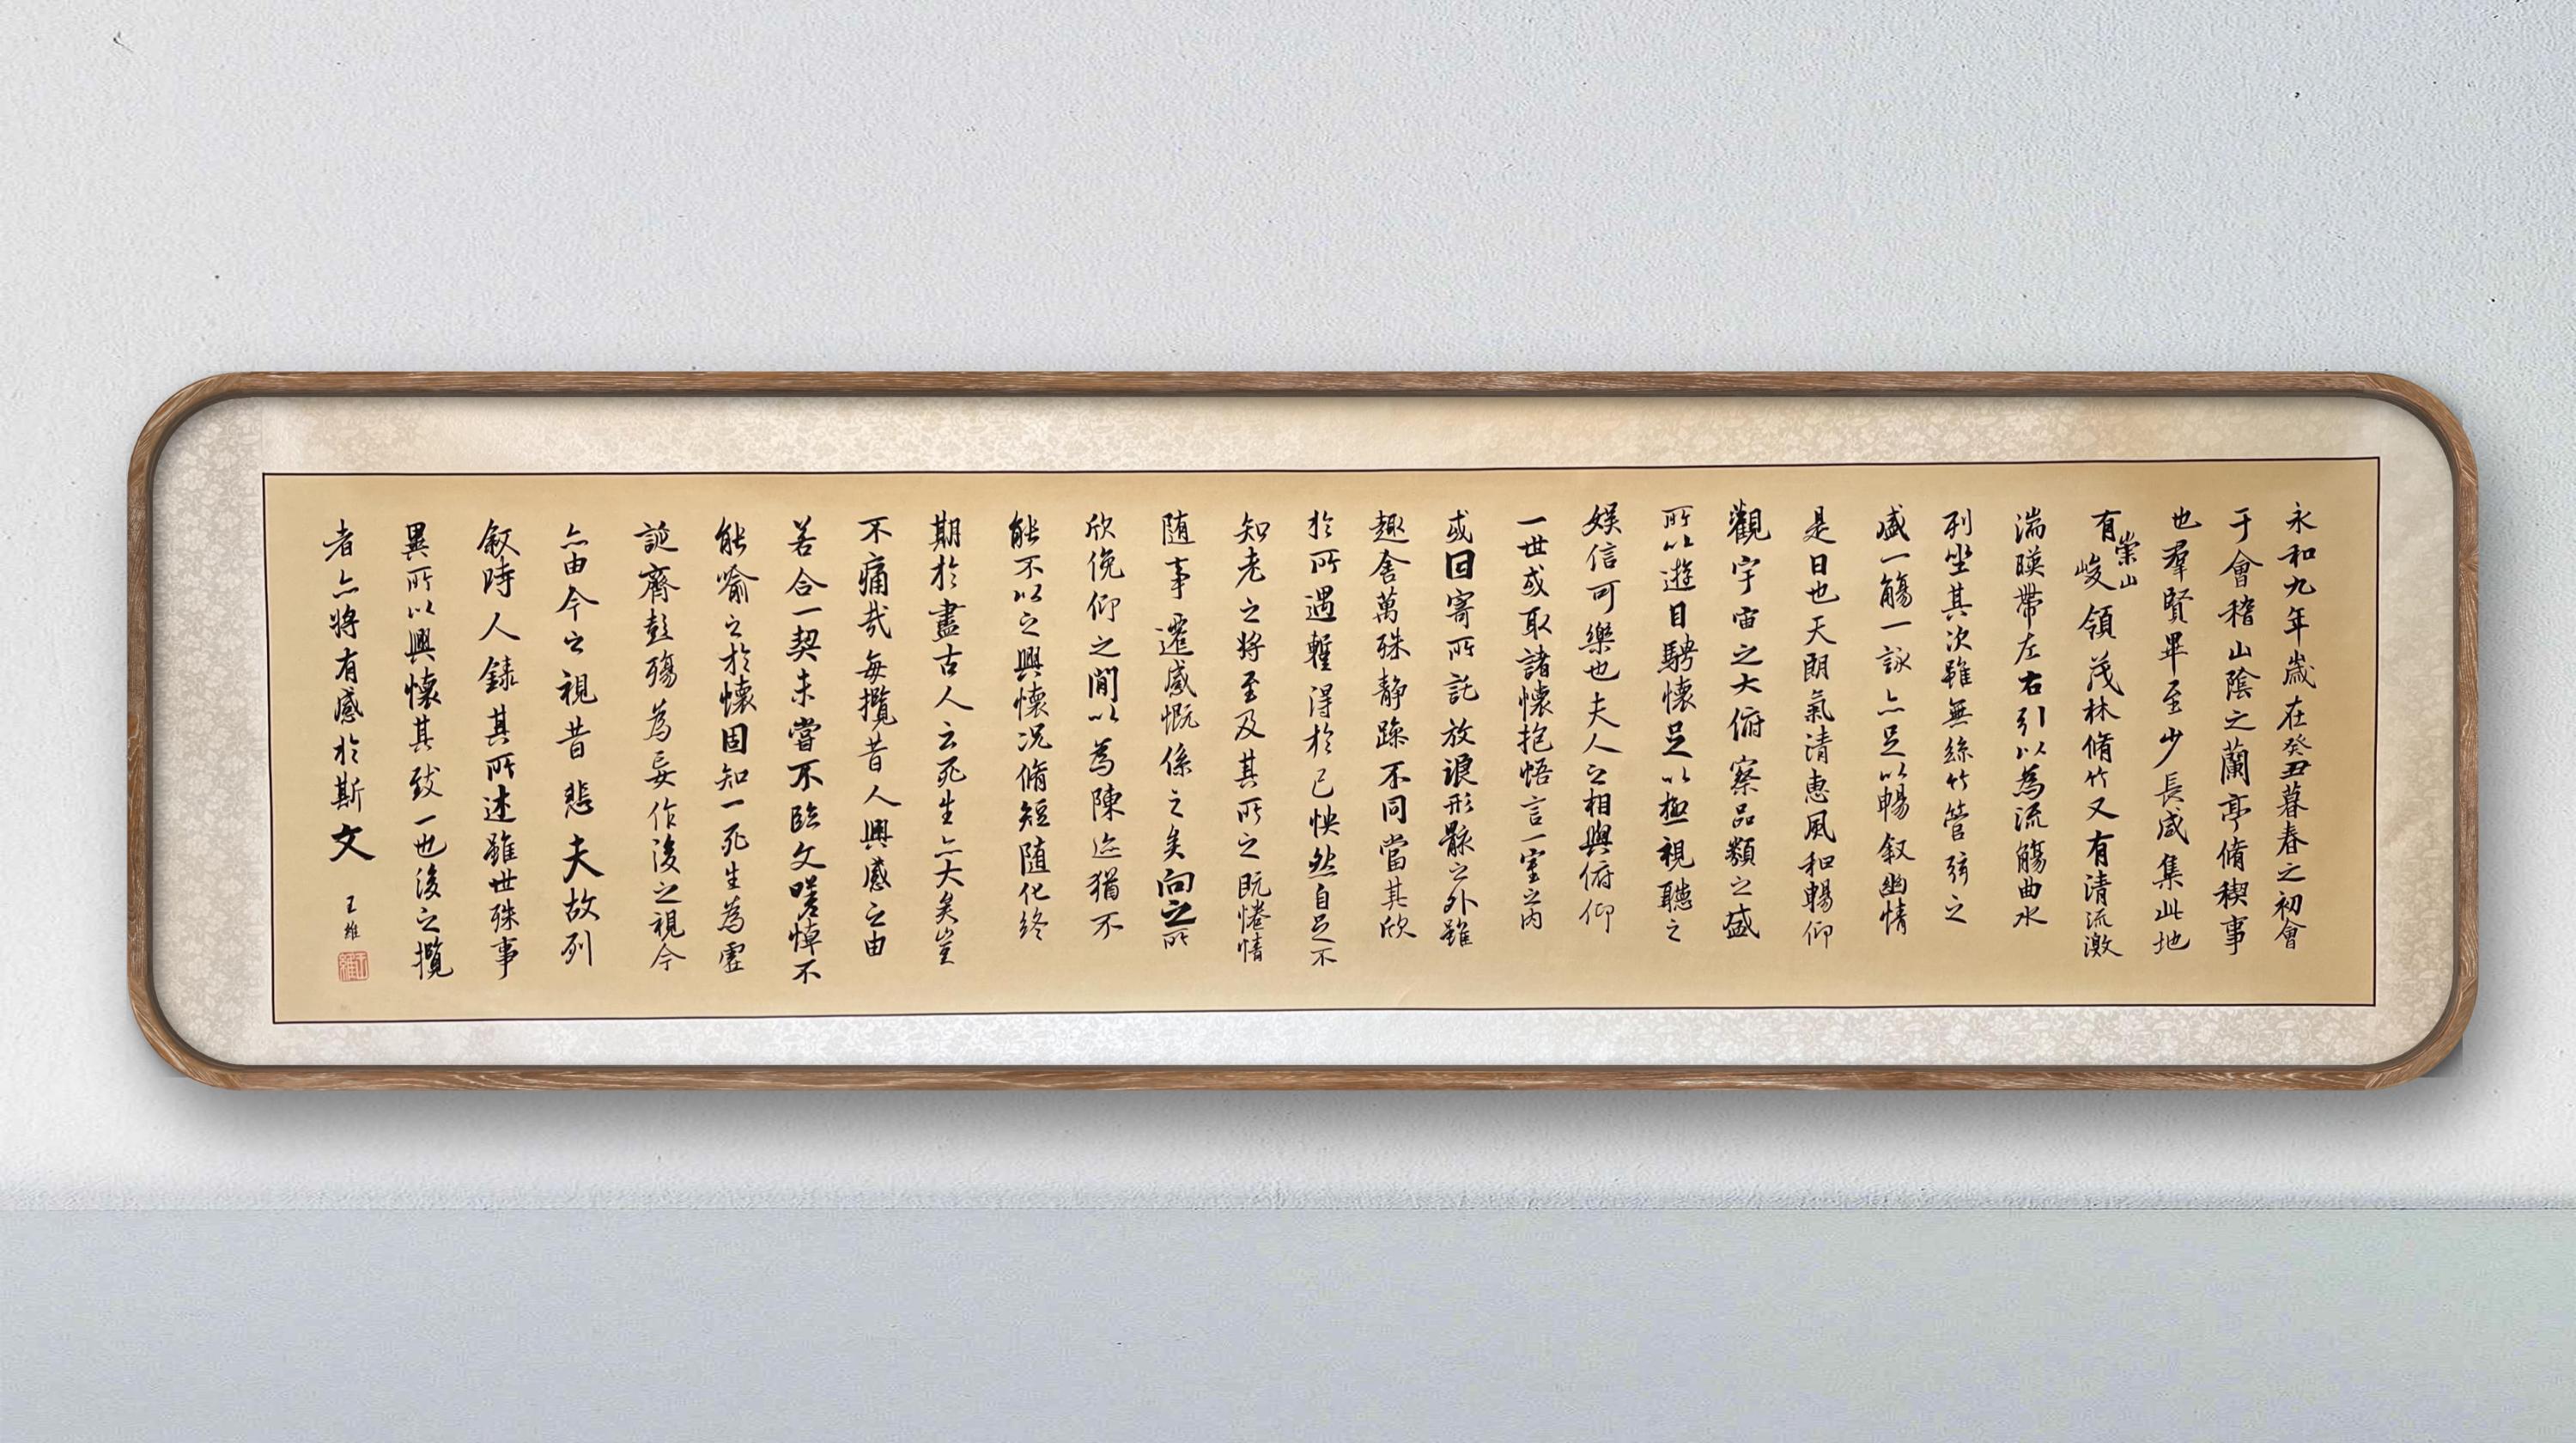 永和九年歲在癸丑暮春之初會
于會稽山陰之蘭亭脩稧事
也羣賢畢至少長咸集此地
有崇山峻領茂林脩竹又有清流激
湍暎帶左右引以為流觴曲水
列坐其次雖無絲竹管弦之
盛一觴一詠亦足以暢叙幽情
是日也天朗氣清惠風和暢仰
觀宇宙之大俯察品類之盛
所以遊目騁懷足以極視聽之
娛信可樂也夫人之相與俯仰
一世或取諸懷抱悟言一室之內
或因寄所託放浪形骸之外雖
趣舍萬殊静躁不同當其欣
於所遇蹔得於己怏然自足不
知老之將至及其所之既惓情
随事遷感慨係之矣向之所
欣俛仰之閒以為陳迹猶不
能不以之興懷况脩短随化終
期於盡古人云死生亦大矣豈
不痛哉每攬昔人興感之由
若合一契未嘗不臨文嗟悼不
能喻之於懷固知一死生為虛
誕齊彭殤為妄作後之視今
亦由今之視昔悲夫故列
叙時人録其所述雖世殊事
異所以興懷其致一也後之攬
者亦將有感於斯文
王維
王維